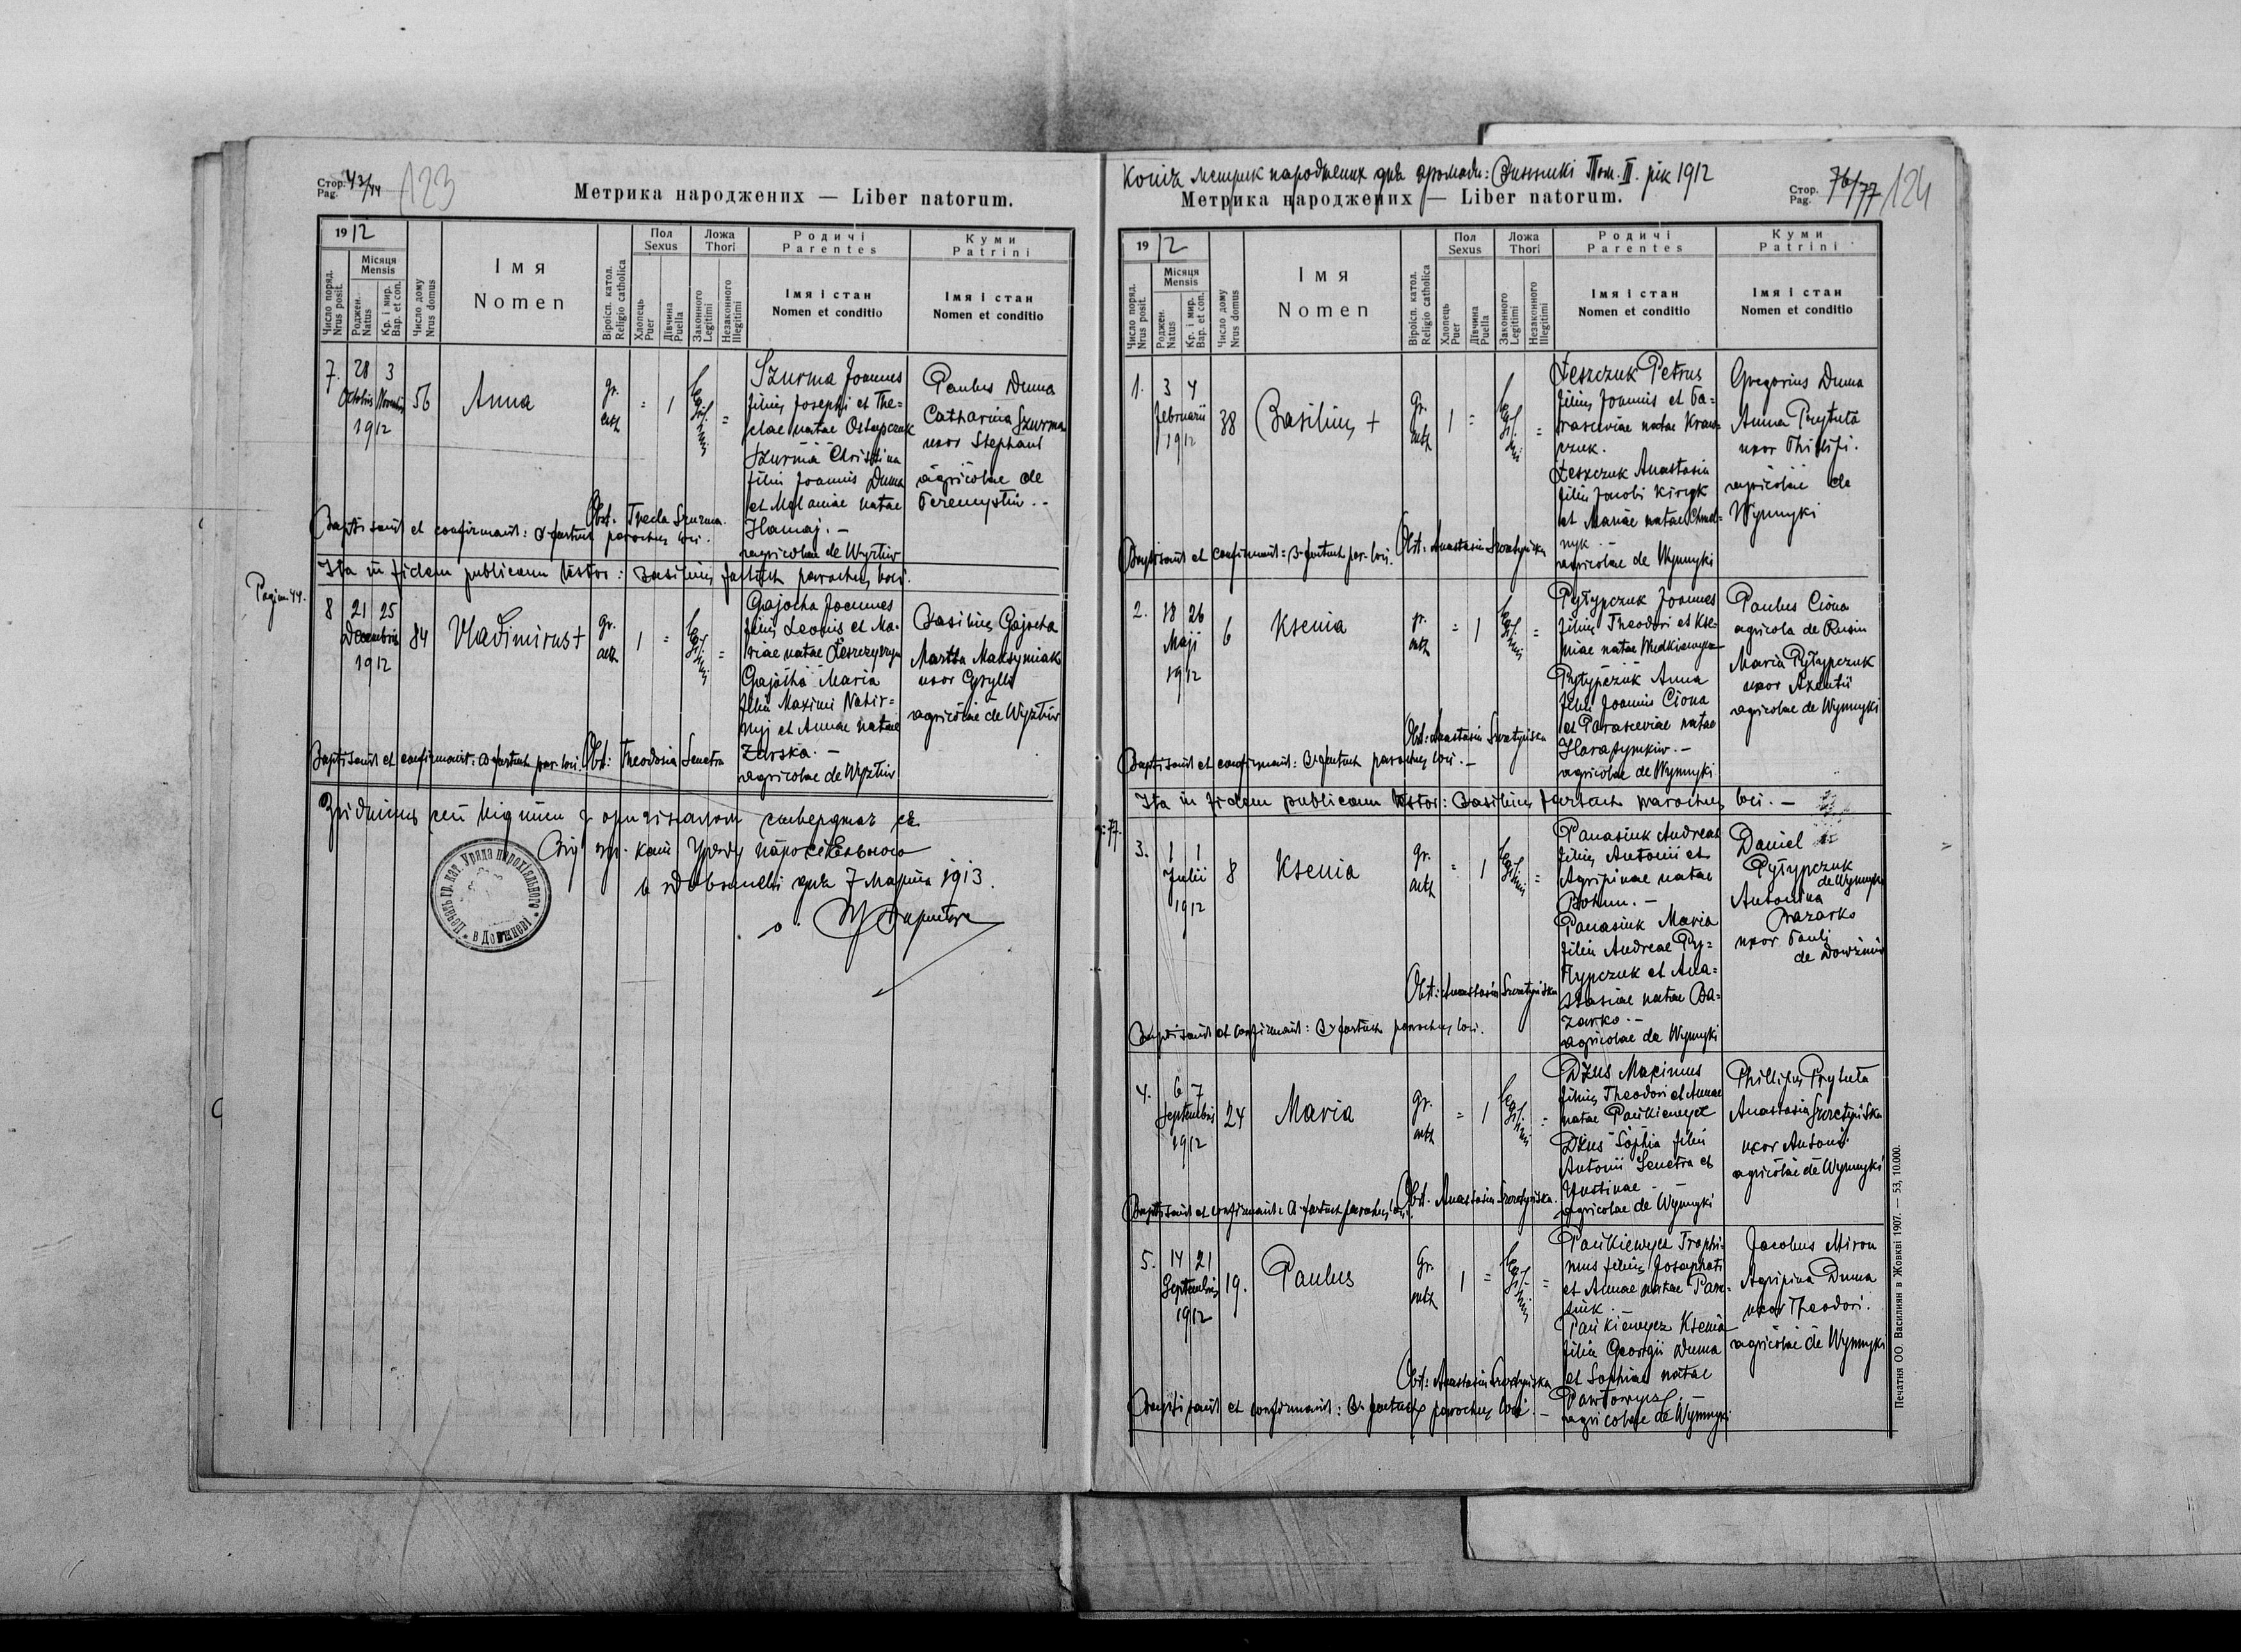 Стор. Pag. 43/44 123
Метрика народжених — Liber natorum.
1912
Число поряд. Nrus posit.
Місяця Mensis
Роджен. Natus
Кр. і мир. Bap. et con.
Число дому Nrus domus
Імя Nomen
Віроісп. катол. Religio catholica
Пол Sexus
Хлопець Puer
Дївчина Puella
Ложа Thori
Законного Legitimi
Незаконного Illegitimi
Родичі Parentes
Імя і стан Nomen et conditio
Куми Patrini
Імя і стан Nomen et conditio
7. 28 3 Octobris Novembris 1912
56
Anna
gr. cath
= 1 legitimi =
Szurma Joannes
filius Josephi et The=
clae natae Ostapczuk
Szurma Christina
filia Joannis Duma
et Melaniae natae
Hamaj. –
agricolae de Wyżłiw
Paulus Duma
Catharina Szurma
uxor Stephani
agricolae de
Peremysłiw. –
Obst. Thecla Szurma.
Baptisavit et confirmavit: parochus loci.
Ita in fidem publicam testor: Basilius parochus loci.
Pagina 44.
8 21 25 Decembris 1912
84
Vladimirus +
gr. cath
1 = legitimi =
Gajocha Joannes
filius Leonis et Ma=
riae natae
Gajocha Maria
filia Maximi Nahir=
nyj et Annae natae
Zarska. –
agricolae de Wyżłiw
Basilius Gajocha
Martha Maksymiak
uxor Cyrylli
agricolae de Wyżłiw
Obst: Theodosia Senetra
Baptisavit et confirmavit: par. loci.
Згідність сеї копії з оригіналом стверджає ся
Від гр. кат. Уряду парохіяльного
в Довжневі дня 7 Марта 1913.
Печать гр. кат. Уряда парохіяльного в Довжневі
Копія метрик народжених для громади: Винники Том. II. рік 1912
Метрика народжених — Liber natorum.
Стор. Pag. 76/77 124
1912
Число поряд. Nrus posit.
Місяця Mensis
Роджен. Natus
Кр. і мир. Bap. et con.
Число дому Nrus domus
Імя Nomen
Віроісп. катол. Religio catholica
Пол Sexus
Хлопець Puer
Дївчина Puella
Ложа Thori
Законного Legitimi
Незаконного Illegitimi
Родичі Parentes
Імя і стан Nomen et conditio
Куми Patrini
Імя і стан Nomen et conditio
1. 3 4 Februarii 1912
38
Basilius +
gr. cath
1 = legitimi =
Łeszczuk Petrus
filius Joannis et Pa=
rasceviae natae Kraw=
czuk.
Łeszczuk Anastasia
filia Jacobi
et Mariae natae Chmel=
nyk. –
agricolae de Wynnyki
Gregorius Duma
Anna Prytuła
uxor Phillipi.
agricolae de
Wynnyki
Obst: Anastasia
Baptisavit et confirmavit: par. loci.
2. 18 26 Maji 1912
6
Ksenia
gr. cath
= 1 legitimi =
Pyłypczuk Joannes
filius Theodori et Kse=
niae natae
Pyłypczuk Anna
filia Joannis Ciona
et Parasceviae natae
Harasymkiw. –
agricolae de Wynnyki
Paulus Ciona
agricola de Rusin
Maria Pyłypczuk
uxor Axentii
agricolae de Wynnyki
Obst: Anastasia
Baptisavit et confirmavit: parochus loci. –
Ita in fidem publicam testor: Basilius parochus loci. –
p: 77.
3. 1 1 Julii 1912
8
Ksenia
gr. cath
= 1 legitimi =
Panasiuk Andreas
filius Antonii et
Agripinae natae
Bohun. –
Panasiuk Maria
filia Andreae Py=
łypczuk et Ana=
stasiae natae Ba=
zarko. –
agricolae de Wynnyki
Daniel
Pyłypczuk
de Wynnyki
Antonina
Bazarko
uxor Pauli
de Dowżniw
Obst: Anastasia
Baptisavit et confirmavit: parochus loci.
4. 6 7 Septembris 1912
24
Maria
gr. cath
= 1 legitimi =
Dżus Maximus
filius Theodori et Annae
natae Pańkiewycz
Dżus Sophia filia
Antonii Senetra et
Justinae –
agricolae de Wynnyki
Phillipus Prytuła
Anastasia
uxor Antonii
agricolae de Wynnyki
Obst. Anastasia
Baptisavit et confirmavit: parochus loci.
5. 14 21 Septembris 1912
19.
Paulus
gr. cath
1 = legitimi =
Pańkiewycz Trophi=
mus filius Josaphati
et Annae natae Pana=
siuk.
Pańkiewycz Ksenia
filia Georgii Duma
et Sophiae natae
Pawłowycz. –
agricolae de Wynnyki
Jacobus Miron
Agripina Duma
uxor Theodori.
agricolae de Wynnyki
Obst: Anastasia
Baptisavit et confirmavit: parochus loci. –
Печатня ОО. Василиян в Жовкві 1907. — 53, 10.000.